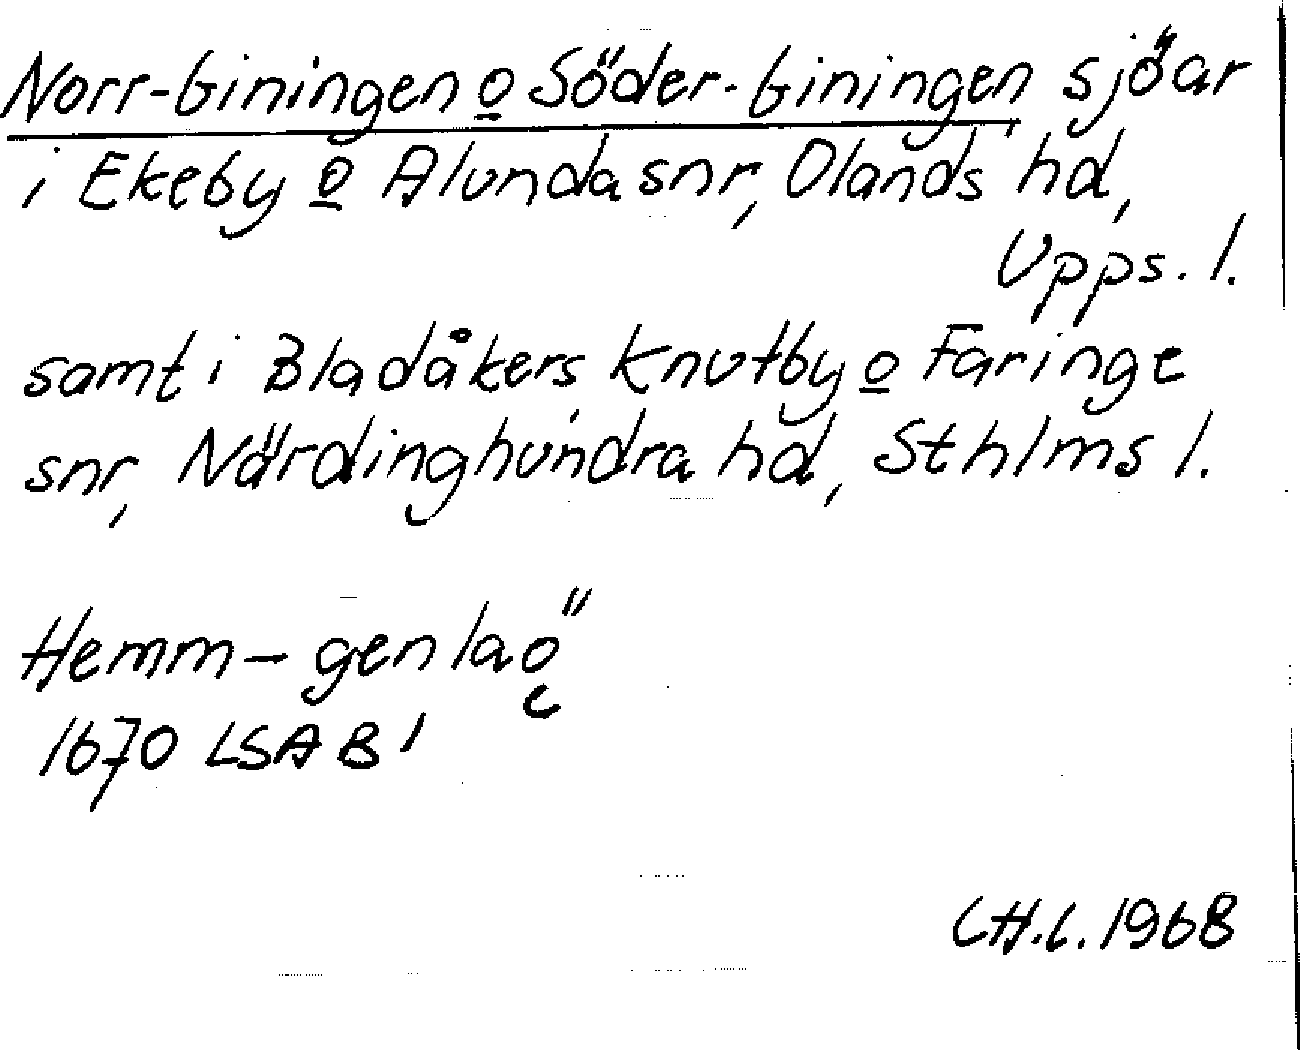 Norr-Giningen o Söder-Giningen sjöar
i Ekeby o Alunda snr, Olands hd,
Upps. l.
samt i Bladåkers Knutby o Faringe
snr, Närdinghundra hd, Sthlms l.
Hemm – gen la
1670 LSA B 1
1968